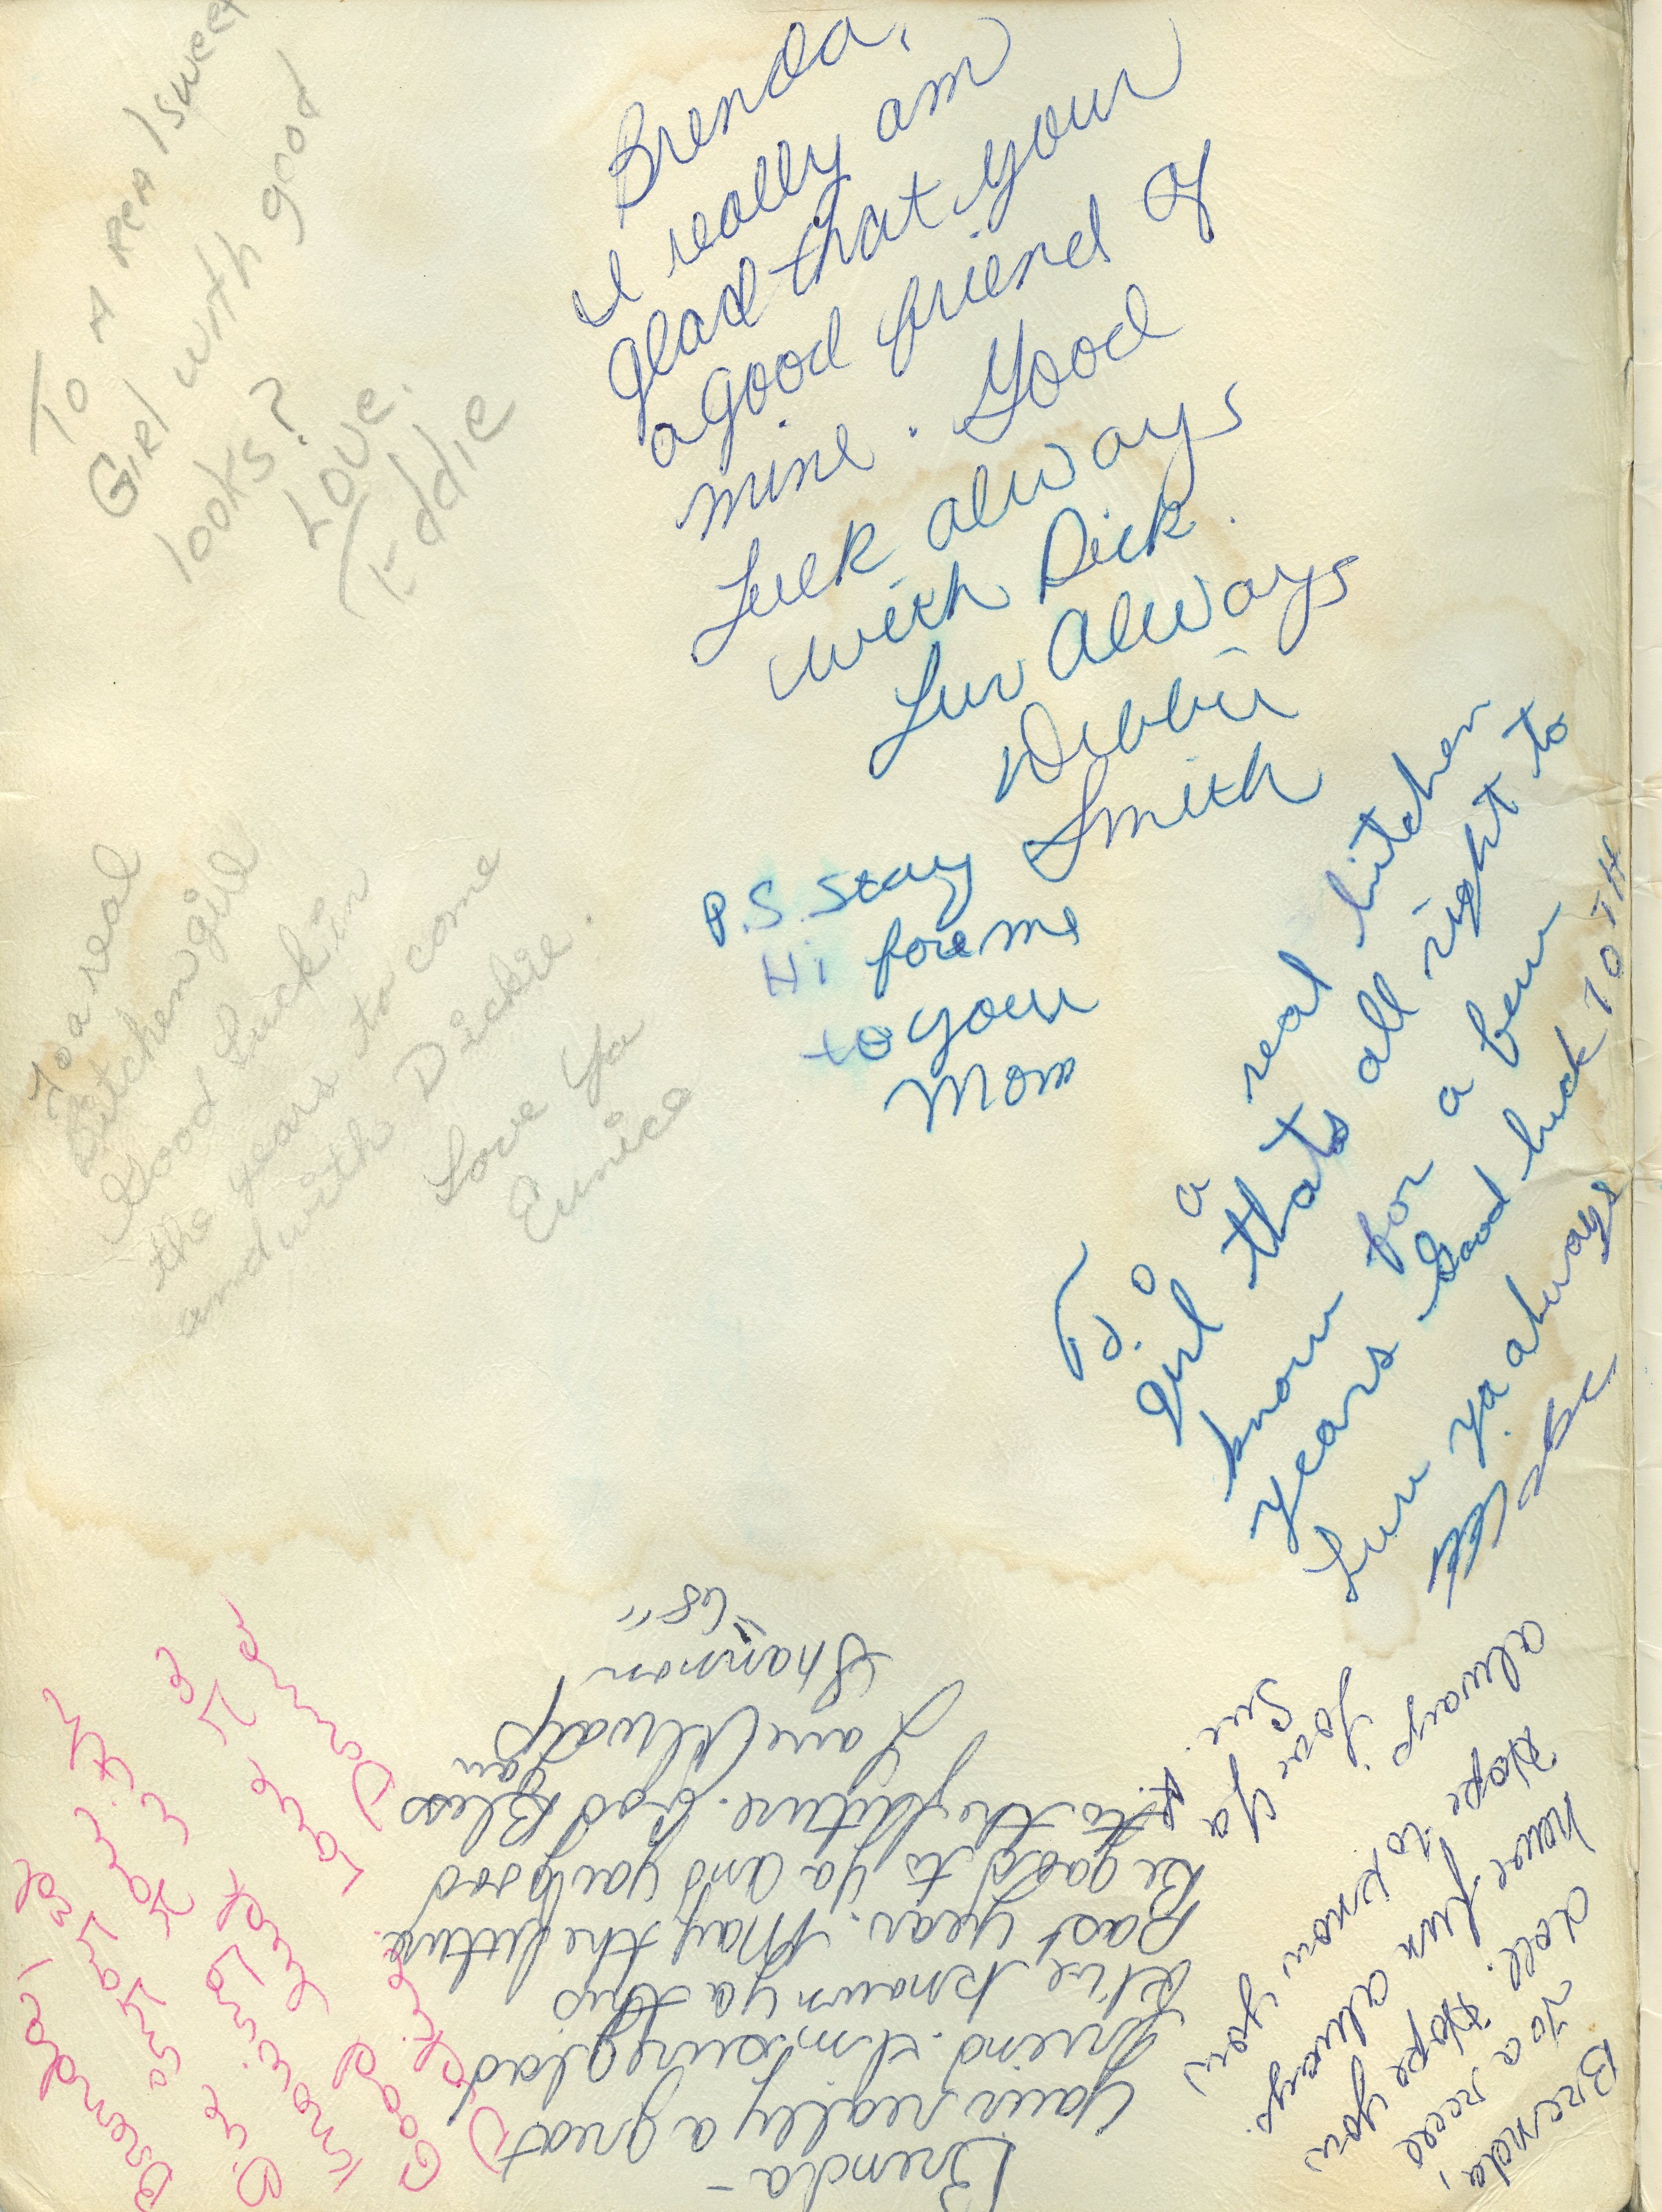 To A ReA l Sweet
Girl with good
looks?
Love,
Eddie
Brenda,
I really am
glad that your
a good friend of
mine. Good
Luck always
with Dick.
Luv Always
Debbie
Smith
P.S. Say
Hi fore me
to your
Mom
To a real
Bitchen girl
Good Luck in
the years to come
and with Dickie.
Love Ya
Eunice
To a real bitchen
girl thats all right to
know for a
years Good luck TO TH
Luv ya always
Brenda-
Your really a great
friend. I'm sure glad
I've known ya this
Past year. May the future
Be good to ya and your
to the future. God Bless
you
Love Always
Shannon
"68"
Brenda,
To a real
doll. Hope you
have fun always.
Hope to know you
always
Love Ya
Sue
Brenda,
To
Good Luck
Dickie.
Love
Donna